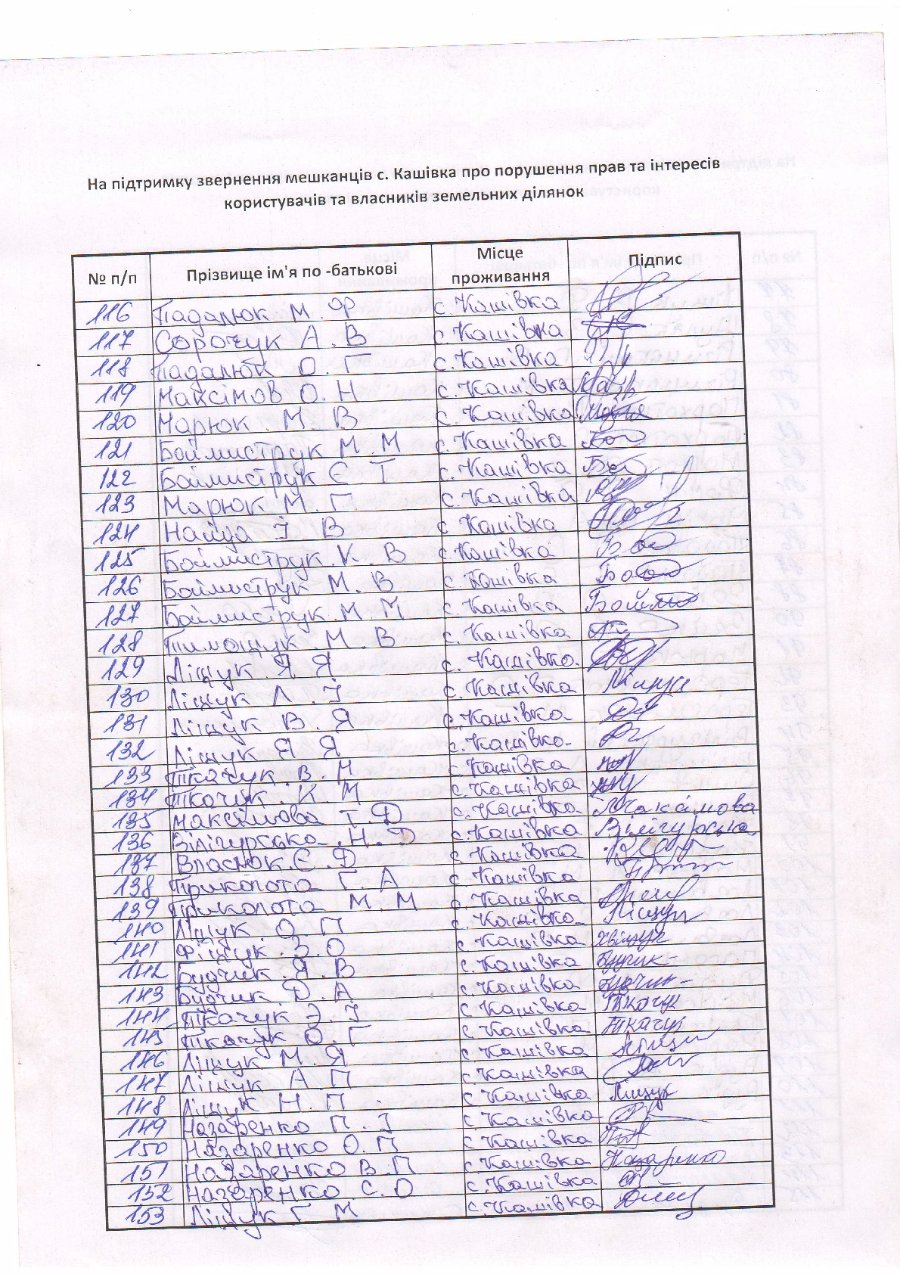 На підтримку звернення мешканців с. Кашівка про порушення прав та інтересів
користувачів та власників земельних ділянок
№ п/п Прізвище ім'я по -батькові Місце проживання Підпис
116 Падалюк М. Ф с. Кашівка
117 Сорочук А. В с. Кашівка
118 Падалюк О. Г с. Кашівка
119 Максімов О. Н с. Кашівка
120 Марюк М. В с. Кашівка
121 Боймиструк М. М с. Кашівка
122 Боймиструк Є Т с. Кашівка
123 Марюк М. П с. Кашівка
124 Найда І В с. Кашівка
125 Боймиструк К. В с. Кашівка
126 Боймиструк М. В с. Кашівка
127 Боймиструк М. М с. Кашівка
128 Тимощук М. В с. Кашівка
129 Ліщук Я Я с. Кашівка
130 Ліщук Л. І с. Кашівка
131 Ліщук В. Я с. Кашівка
132 Ліщук Я Я с. Кашівка
133 Ткачук В. М с. Кашівка
134 Ткачук К М с. Кашівка
135 Максімова Т. Ф с. Кашівка
136 Вілігурська Н. с. Кашівка Вілігурська
137 Власюк Є. Ф с. Кашівка
138 Приколота Г. А с. Кашівка
139 Приколота М. М с. Кашівка
140 Ліщук О. П с. Кашівка Ліщук
141 Фіщук З. О с. Кашівка
142 Будчик Я. В с. Кашівка
143 Будчик Д. А с. Кашівка
144 Ткачук Э. І с. Кашівка Ткачук
145 Ткачук О. Г с. Кашівка Ткачук
146 Ліщук М. Я с. Кашівка
147 Ліщук А П с. Кашівка
148 Ліщук Н. П. с. Кашівка Ліщук
149 Назаренко П. І с. Кашівка
150 Назаренко О. П с. Кашівка
151 Назаренко В. П с. Кашівка Назаренко
152 Назаренко С. О с. Кашівка
153 Ліщук Г М с. Кашівка